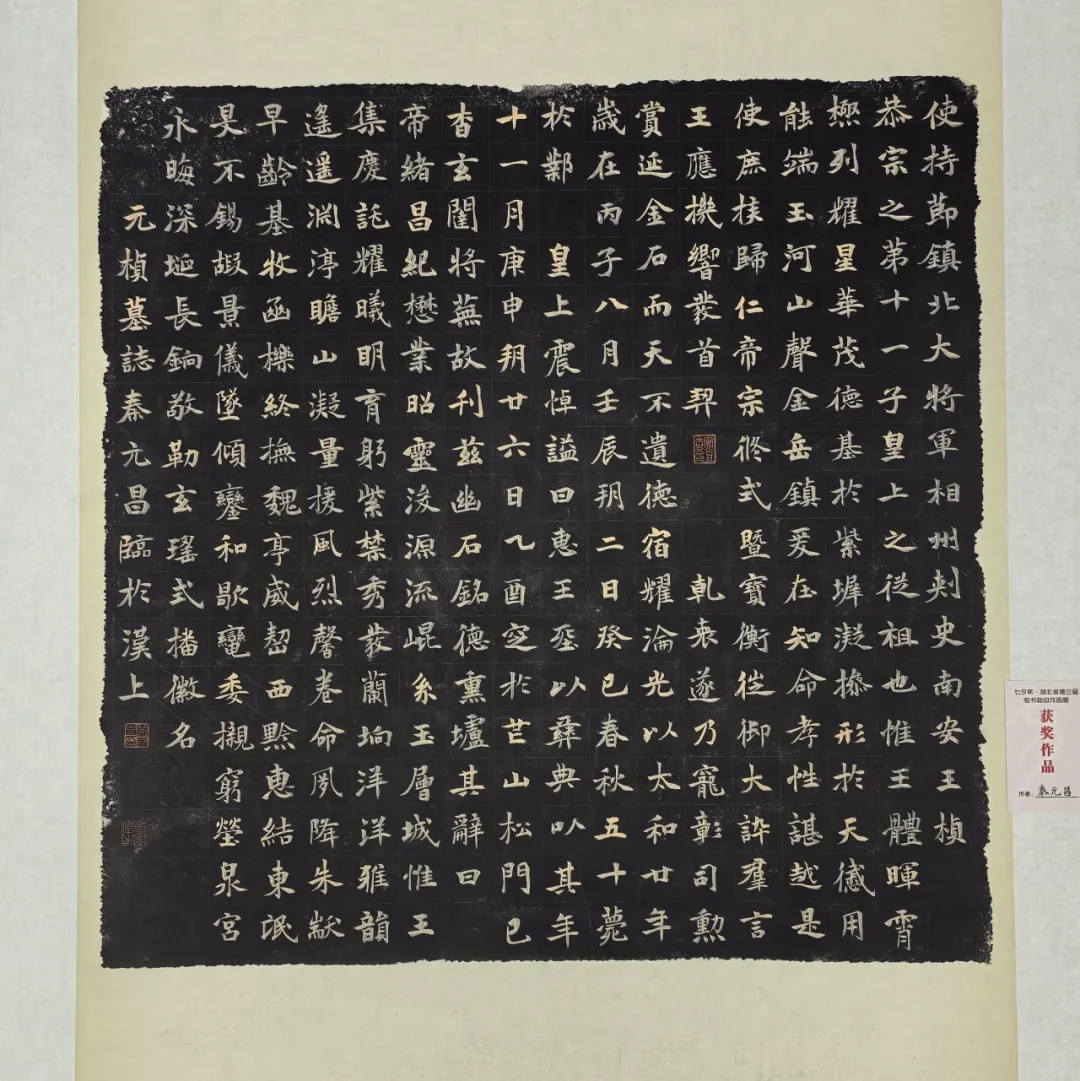 使持節鎮北大將軍相州刾史南安王楨
恭宗之第十一子皇上之從祖也惟王體暉霄
極列耀星華茂德基於紫墀凝操形於天感用
能端玉河山聲金岳鎮爰在知命孝性諶越是
使庶族歸仁帝宗攸式暨寶衡徙御大訟羣言
王應機響發首契 乹衷遂乃寵彰司勲
賞延金石而天不遺德宿耀淪光以太和廿年
歲在丙子八月壬辰朔二日癸巳春秋五十薨
於鄴 皇上震悼諡曰惠王葬以彝典以其年
十一月庚申朔廿六日乙酉窆於芒山松門已
杳玄闥將蕪故刊茲幽石銘德熏壚其辭曰
帝緒昌紀懋業昭靈浚源流崐系玉層城惟王
集慶託耀曦明育躬紫禁秀發蘭坰洋洋雅韻
遙遙淵渟瞻山凝量援風烈馨卷命夙降朱黻
早齡基牧函櫟終撫魏亭威西黔惠結東氓
旻不錫嘏景儀墜傾鑾和歇委櫬窮塋泉宮
永晦深埏長銷敬勒玄瑤式播徽名
元楨墓誌秦元昌臨於漢上
七夕杯·湖北省第三届
获奖作品
作者：秦元昌